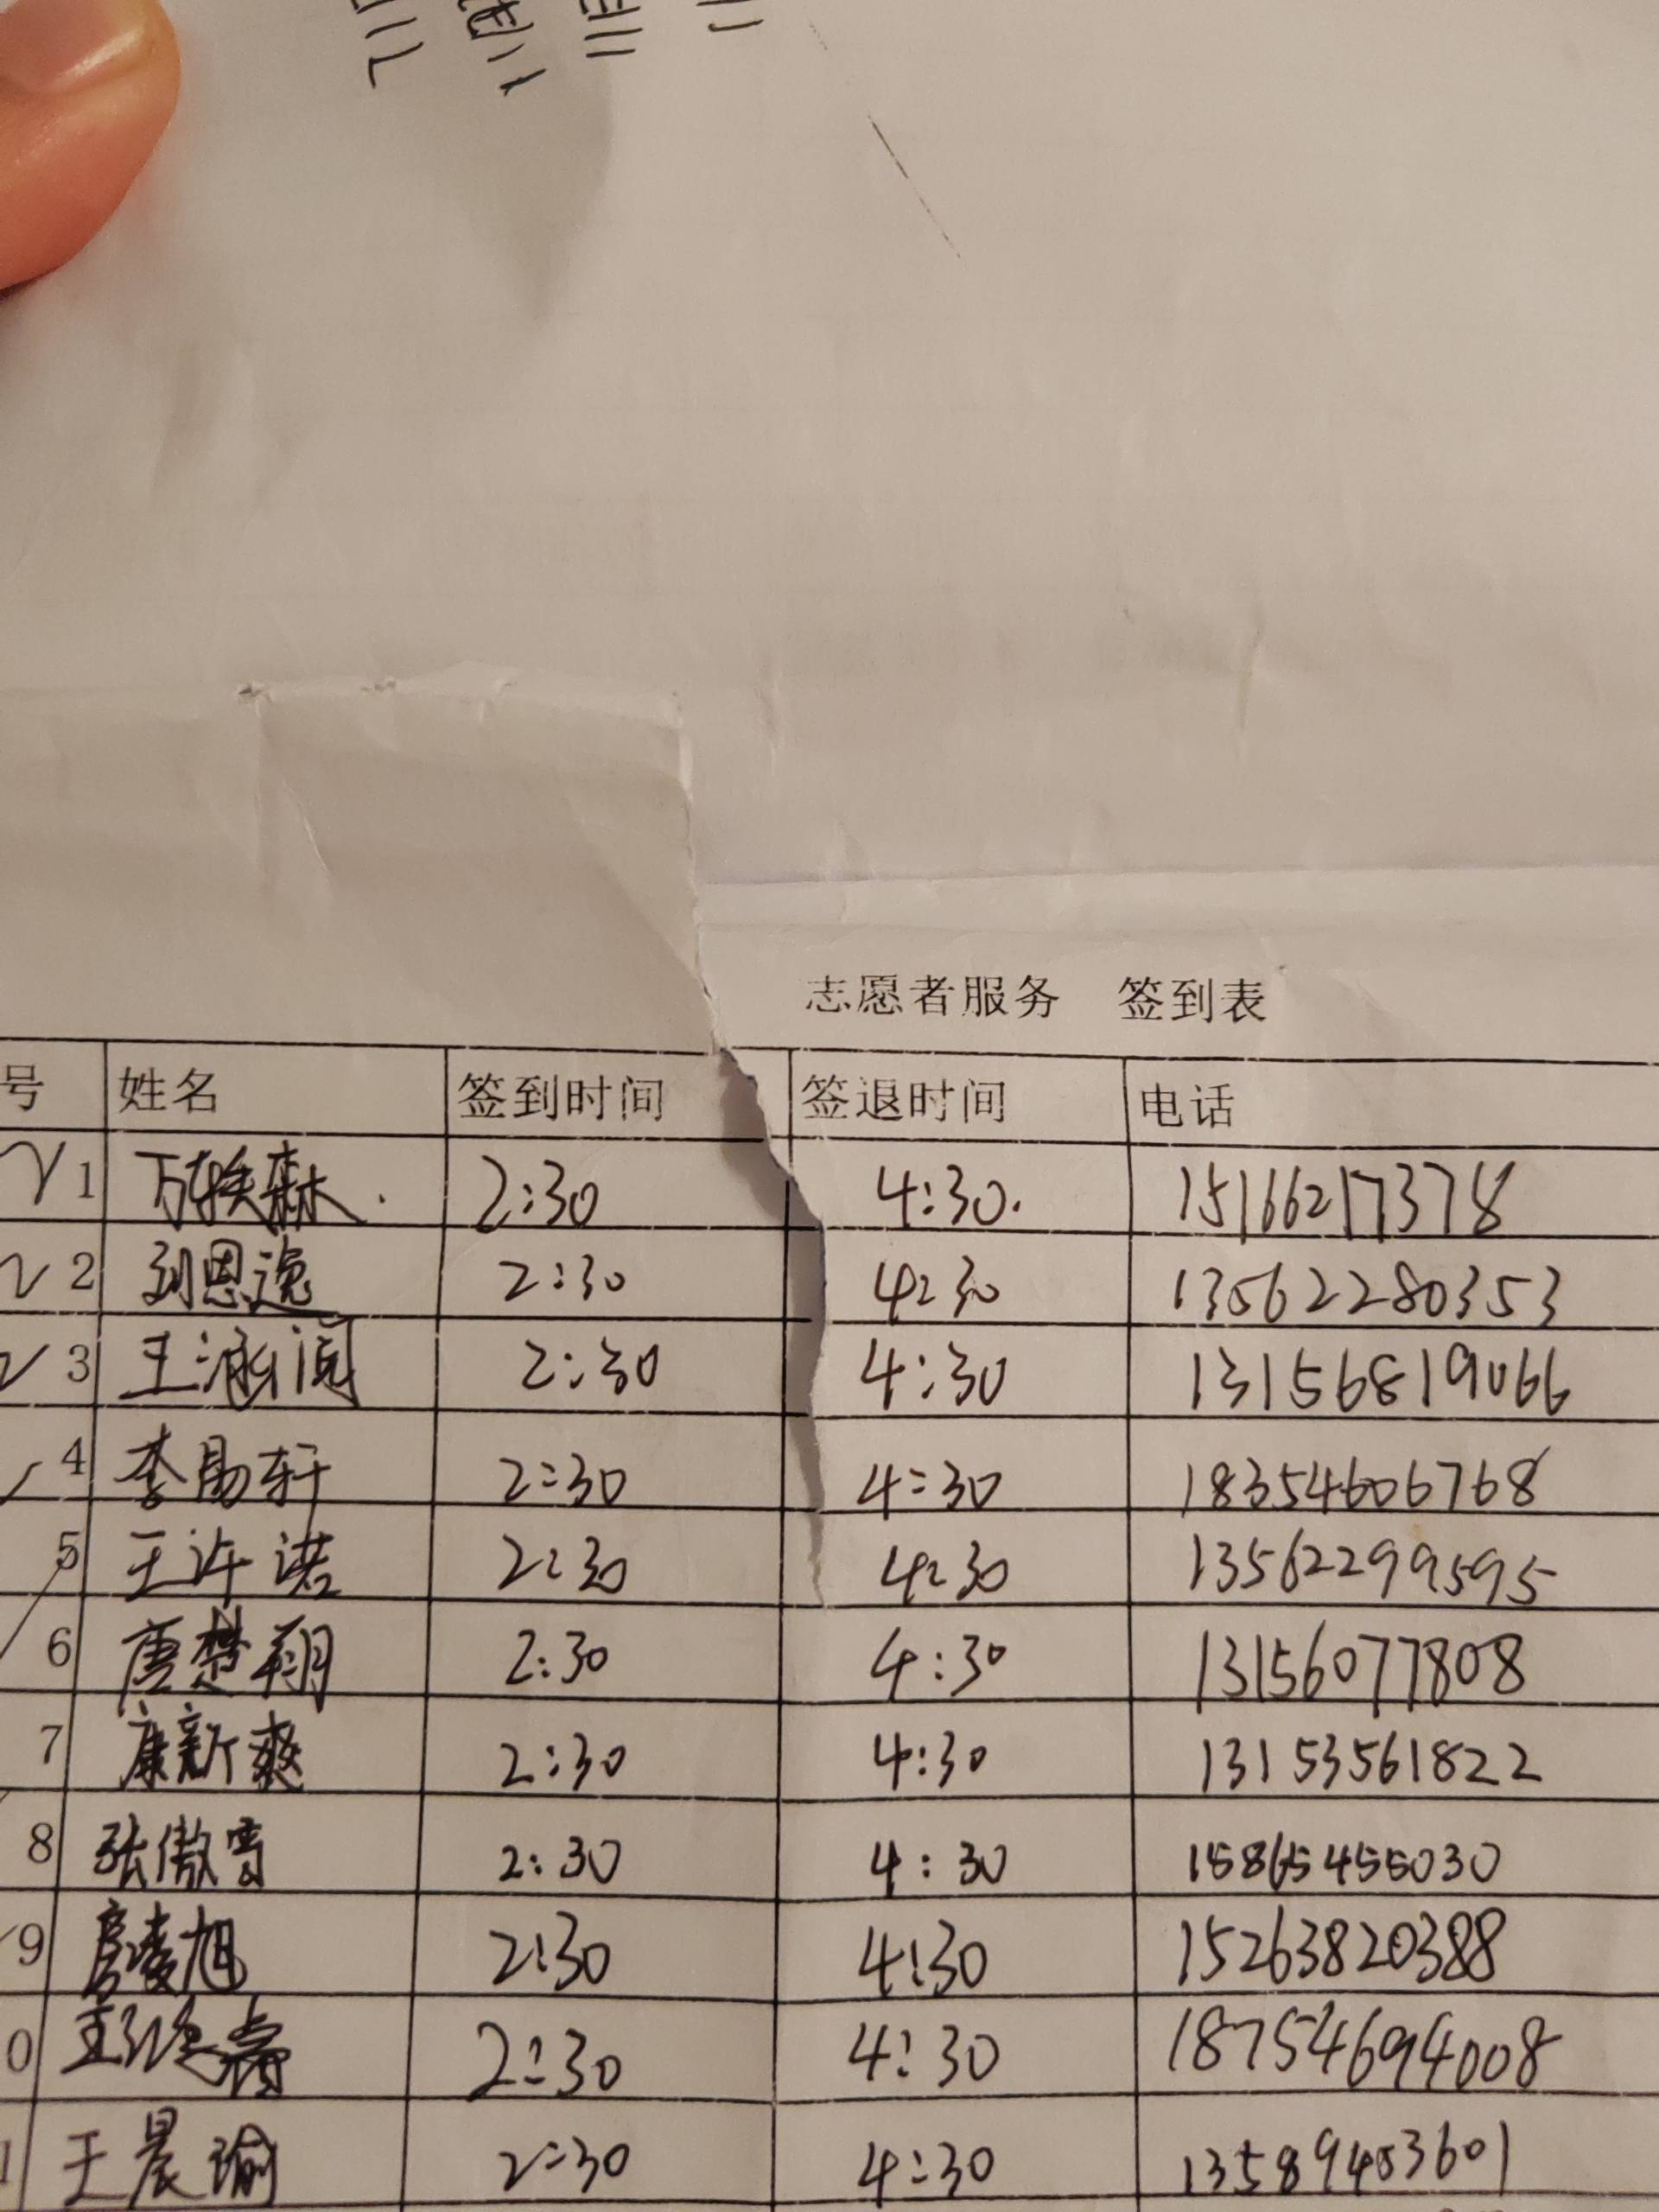 志愿者服务 签到表
号 姓名 签到时间 签退时间 电话
1 万轶森. 2:30 4:30. 15166217378
2 刘恩逸 2:30 4:30 13562280353
3 王涵阅 2:30 4:30 13156819066
4 李易轩 2:30 4:30 18354606768
5 王许诺 2:30 4:30 13562299595
6 唐楚翔 2:30 4:30 13156077808
7 康新爽 2:30 4:30 13153561822
8 张傲雪 2:30 4:30 15865455030
9 房凌旭 2:30 4:30 15263820388
0 2:30 4:30 18754694008
1 王晨瑜 2:30 4:30 13589453601